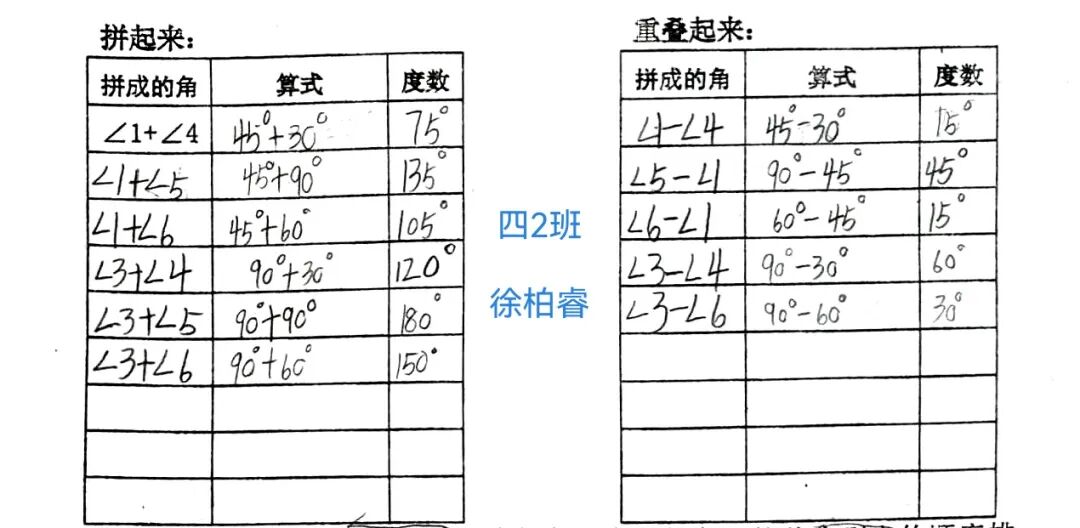 拼起来：
拼成的角 算式 度数
∠1+∠4 45°+30° 75°
∠1+∠5 45°+90° 135°
∠1+∠6 45°+60° 105°
∠3+∠4 90°+30° 120°
∠3+∠5 90°+90° 180°
∠3+∠6 90°+60° 150°
四2班
徐柏睿
重叠起来：
拼成的角 算式 度数
∠1-∠4 45°-30° 15°
∠5-∠1 90°-45° 45°
∠6-∠1 60°-45° 15°
∠3-∠4 90°-30° 60°
∠3-∠6 90°-60° 30°